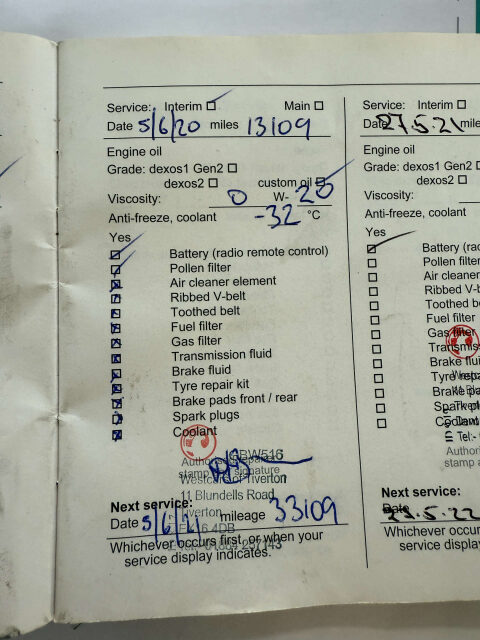 Service: Interim Main
Date 5/6/20 miles 13109
Engine oil
Grade: dexos1 Gen2
dexos2 custom oil
Viscosity: 0 W- 20
Anti-freeze, coolant -32 °C
Yes
Battery (radio remote control)
Pollen filter
Air cleaner element
Ribbed V-belt
Toothed belt
Fuel filter
Gas filter
Transmission fluid
Brake fluid
Tyre repair kit
Brake pads front / rear
Spark plugs
Coolant
signature
Westcars of Tiverton
11 Blundells Road
Tiverton
Next service:
Date 5/6/21 mileage 33109
Whichever occurs first, or when your
service display indicates.
Service: Interim
Date 27.5.21 mile
Engine oil
Grade: dexos1 Gen2
dexos2
Viscosity:
Anti-freeze, coolant
Yes
Battery (ra
Pollen filter
Air cleaner
Ribbed V-b
Toothed be
Fuel filter
Gas filter
Transmis
Brake flu
Tyre repa
Brake pa
Spark pl
Coolant
Tel:-
Authori
stamp a
Next service:
Date .5.22
Whichever occurs
service display